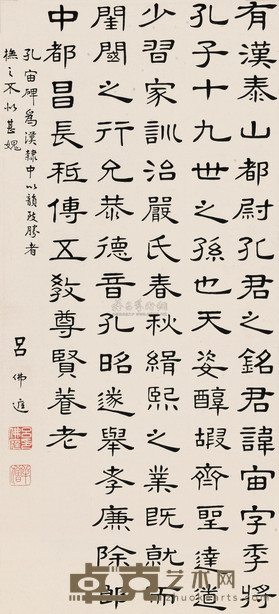 有漢泰山都尉孔君之銘君諱宙字季將
孔子十九世之孫也天姿醇嘏齊聖達道
少習家訓治嚴氏春秋緝熙之業既就而
閨閾之行允恭德音孔昭遂舉孝廉除郎
中都昌長祗傳五教尊賢養老
孔宙碑爲漢隸中以韻致勝者
撫之不似甚媿
呂佛庭
卓克艺术网